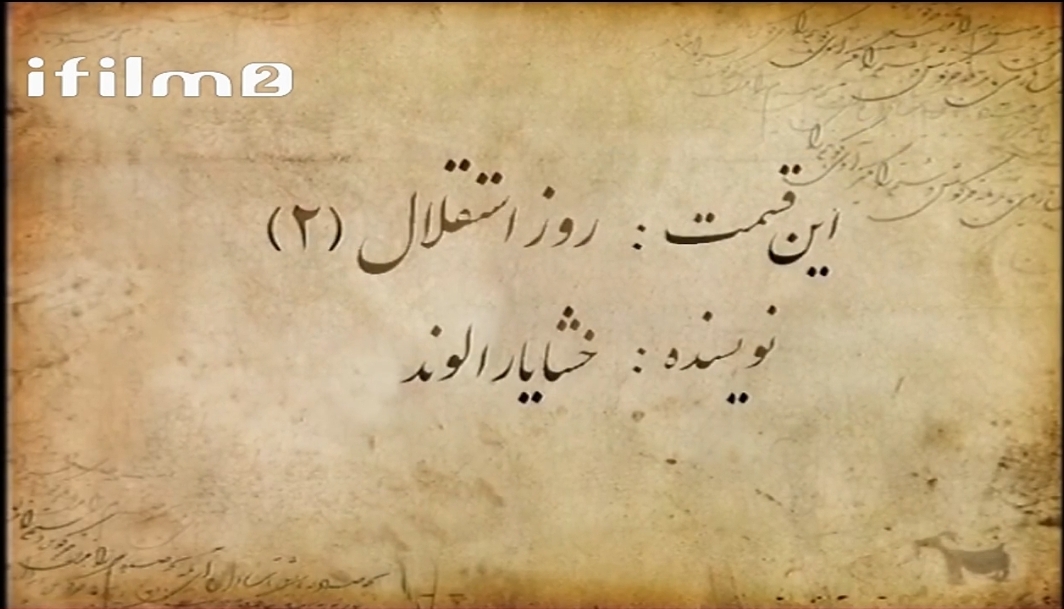 ifilm2
این قسمت : روز استقلال (۲)
نویسنده : خشایار الوند